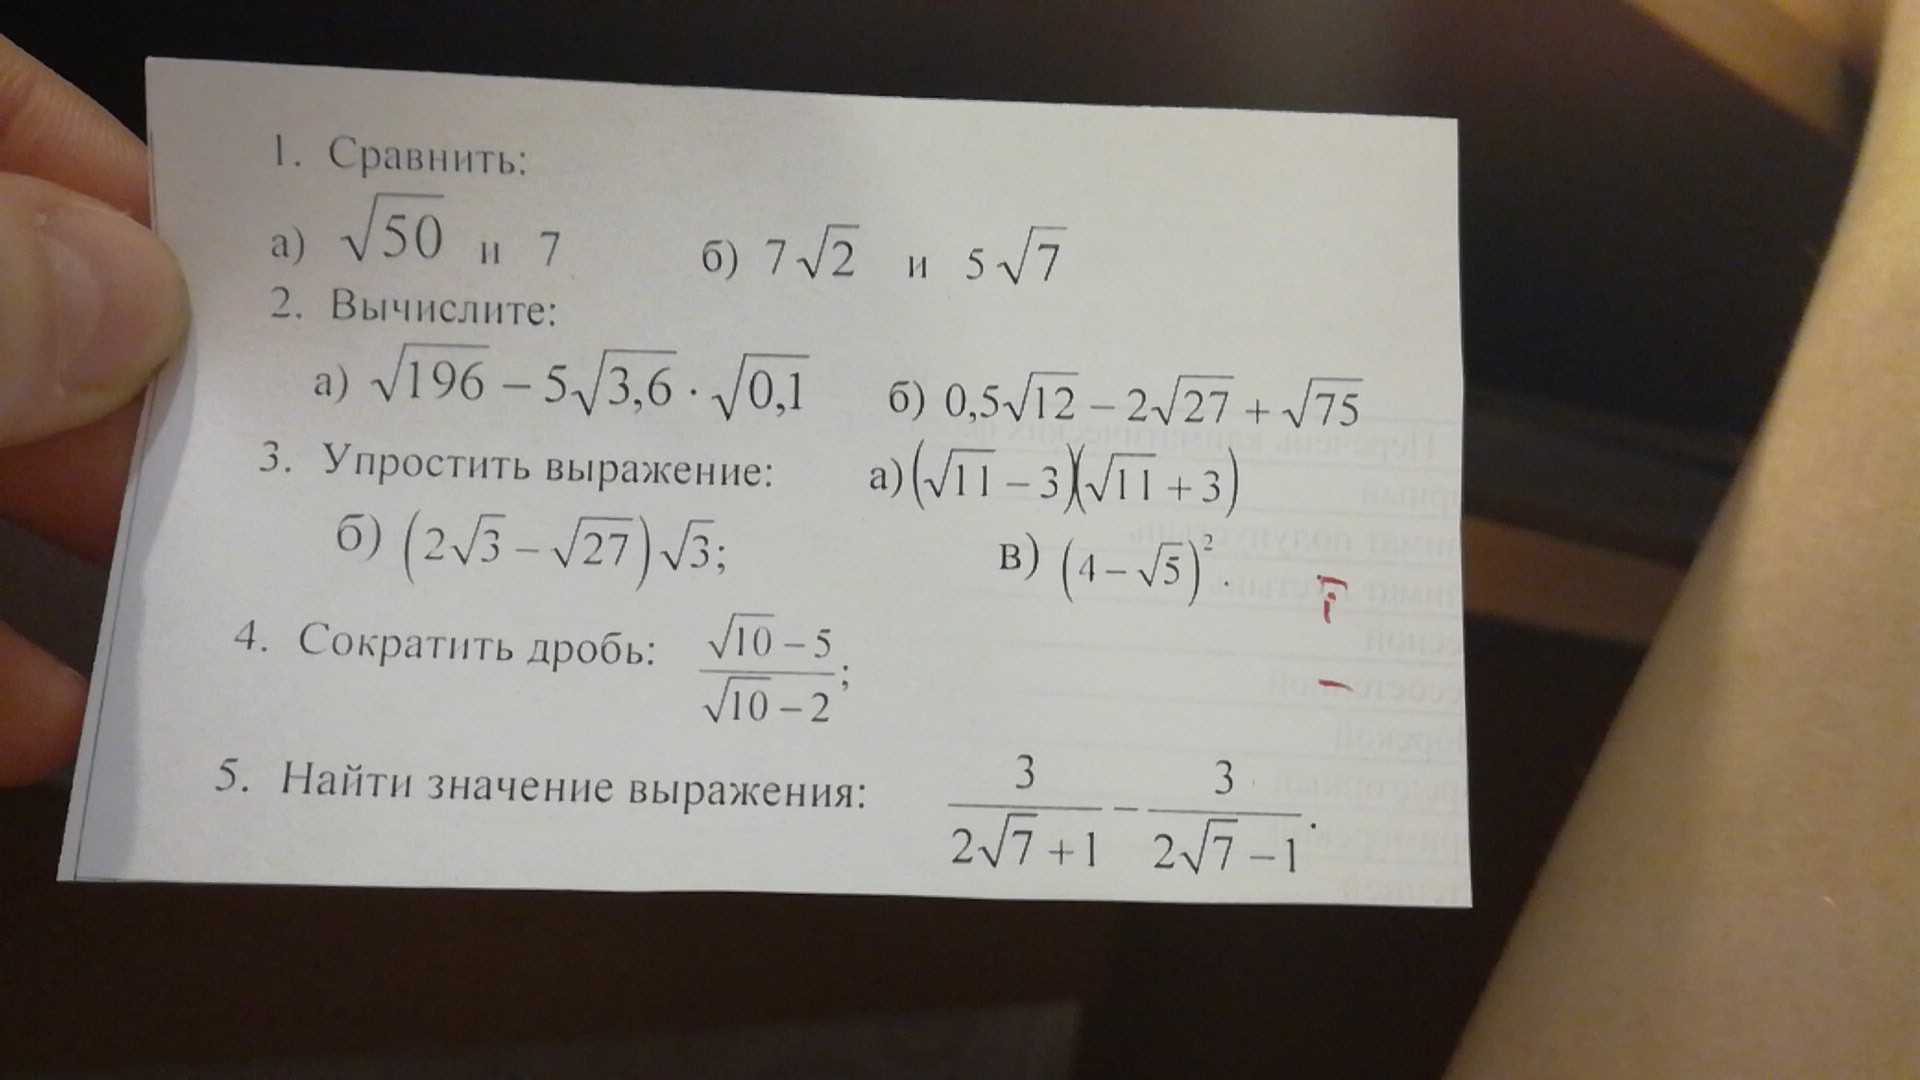 1. Сравнить:
а) √50 и 7 б) 7√2 и 5√7
2. Вычислите:
а) √196 – 5√3,6 · √0,1 б) 0,5√12 – 2√27 + √75
3. Упростить выражение: а) (√11 – 3)(√11 + 3)
б) (2√3 – √27)√3; в) (4 – √5)².
4. Сократить дробь: (√10 – 5)/(√10 – 2);
5. Найти значение выражения: 3/(2√7 + 1) – 3/(2√7 – 1).